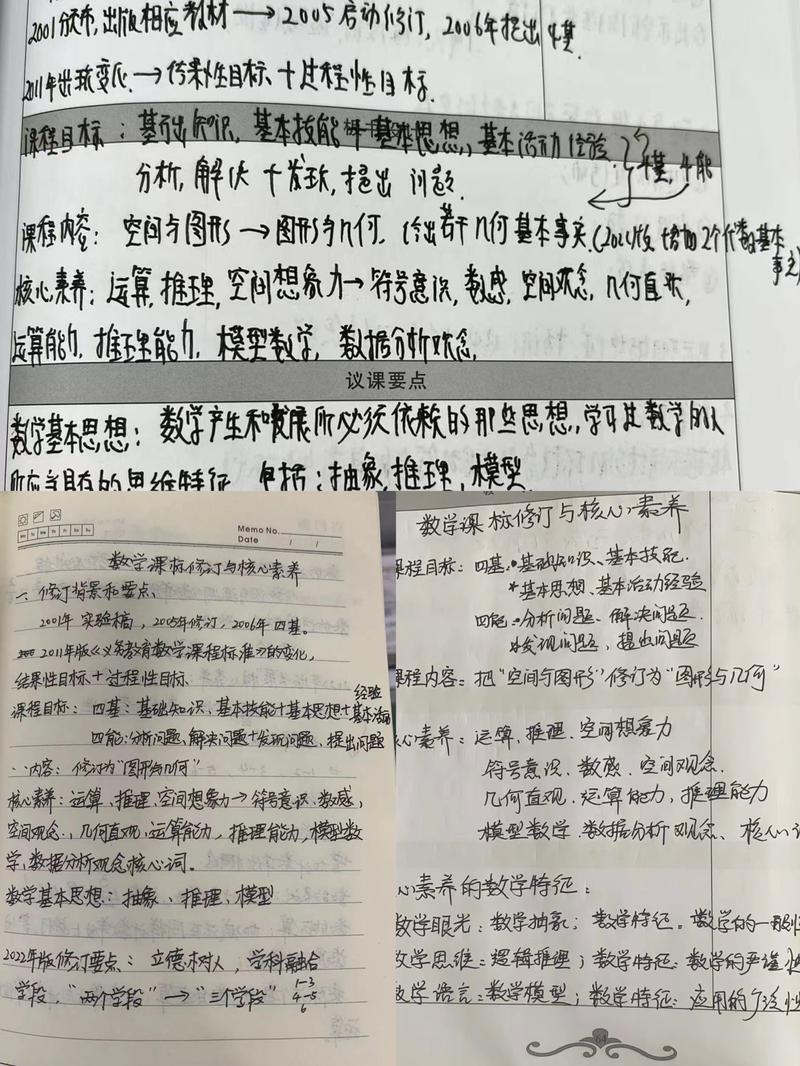 2001颁布,出版相应教材→2005启动修订,2006年提出4基.
2011年出现变化→结果性目标+过程性目标.
课程目标:基础知识,基本技能+基本思想,基本活动经验 }4基,4能
分析,解决+发现,提出 问题.
课程内容:空间与图形→图形与几何.给出若干几何基本事实.(2011版增加2个代数基本
事实)
核心素养:运算,推理,空间想象力→符号意识,数感,空间观念,几何直观,
运算能力,推理能力,模型数学,数据分析观念.
议课要点
数学基本思想:数学产生和发展所必须依赖的那些思想,学习过数学的人
所应当具有的思维特征.包括:抽象,推理,模型.
Memo No.
Date / /
数学课标修订与核心素养
一、修订背景和要点.
2001年实验稿,2005年修订,2006年四基.
2011年版《义务教育数学课程标准》的变化,
结果性目标+过程性目标
经验
课程目标:四基:基础知识、基本技能+基本思想+基本活动
四能:分析问题、解决问题+发现问题、提出问题
内容:修订为“图形与几何”
核心素养:运算、推理、空间想象力→符号意识、数感,
空间观念、几何直观、运算能力、推理能力、模型数
学、数据分析观念核心词。
数学基本思想:抽象、推理、模型
2022年版修订要点:立德树人,学科融合
学段,“两个学段”→“三个学段”
1-3
4-5
6
数学课标修订与核心素养
课程目标:四基:•基础知识、基本技能.
*基本思想、基本活动经验
四能:•分析问题、解决问题.
*发现问题、提出问题
课程内容:把“空间与图形”修订为“图形与几何”
心素养:运算、推理、空间想象力
符号意识、数感、空间观念.
几何直观、运算能力,推理能力
模型数学、数据分析观念、核心词
心素养的数学特征:
数学眼光:数学抽象;数学特征。数学的一般性
数学思维:逻辑推理;数学特征:数学的严谨性
数学语言:数学模型;数学特征:应用的广泛性
64